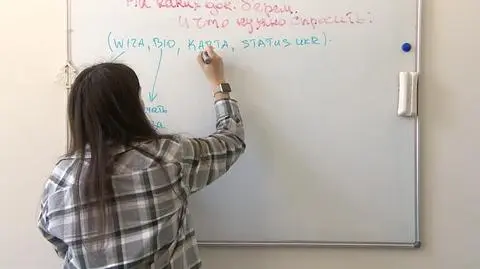 На каких док. берем.
и что нужно спросить:
(WIZA, BIO, KARTA, STATUS UKR).